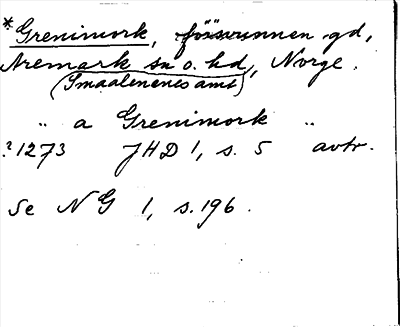 *Grenimork, försvunnen gd,
Aremark sn o. hd, Norge.
(Smaalenenes amt)
„ a Grenimork „
?1273 JHD 1, s. 5 avtr.
Se NG 1, s. 196.